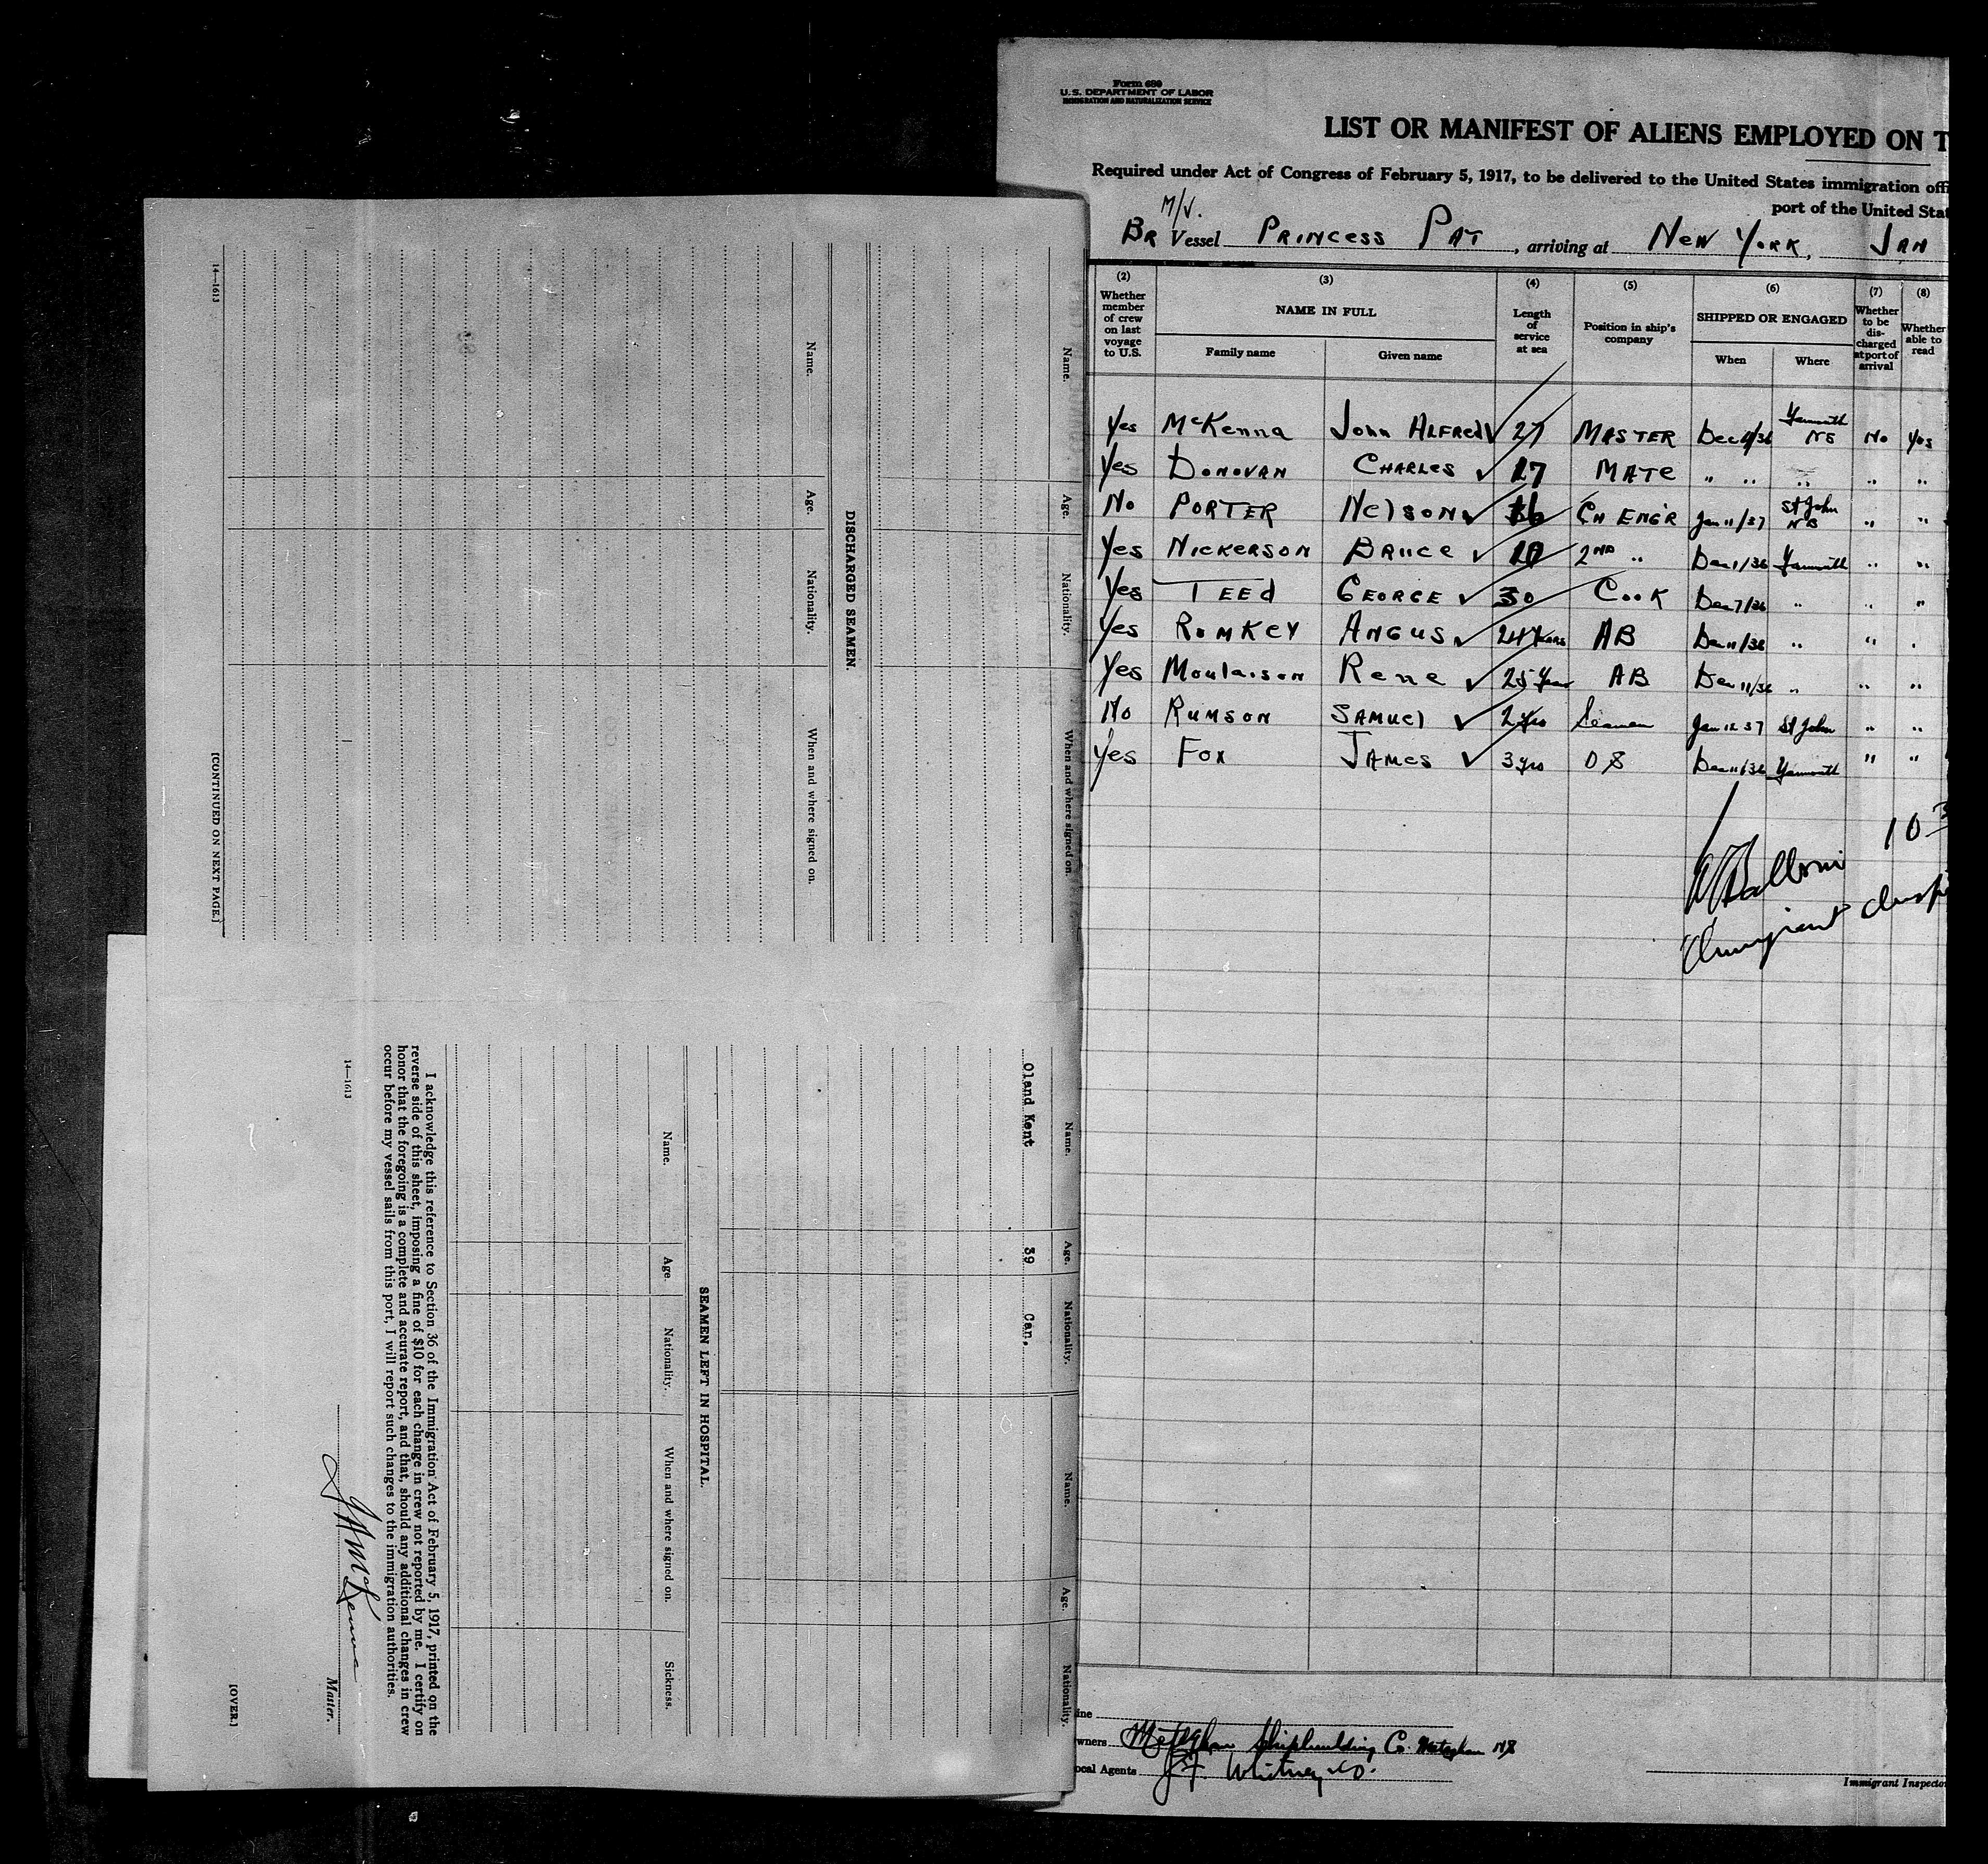 Form 680
U.S. DEPARTMENT OF LABOR
IMMIGRATION AND NATURALIZATION SERVICE
LIST OR MANIFEST OF ALIENS EMPLOYED ON T
Required under Act of Congress of February 5, 1917, to be delivered to the United States immigration offi
port of the United Stat
M/V.
BR Vessel PRINCESS PAT, arriving at NEW YORK, JAN
(2) Whether member of crew on last voyage to U.S.
(3) NAME IN FULL
Family name Given name
(4) Length of service at sea
(5) Position in ship's company
(6) SHIPPED OR ENGAGED
When Where
(7) Whether to be discharged at port of arrival
(8) Whether able to read
Yes McKenna John ALFRED 27 MASTER Dec /36 Yarmouth NS No Yes
Yes DONOVAN CHARLES 27 MATE " " " " "
No PORTER NELSON CH ENGR Jan 11/37 St John NB " "
Yes NICKERSON BRUCE 2ND " Dec 1/36 Yarmouth " "
Yes TEED GEORGE 30 COOK Dec 7/36 " " "
Yes ROMKEY ANGUS 24 Years AB Dec 11/36 " " "
Yes Moulaison Rene 25 Year AB Dec 11/36 " " "
No RUMSON SAMUEL 2 yrs Seaman Jan 12 37 St John " "
Yes FOX JAMES 3 yrs OS Dec 11/36 Yarmouth " "
10
Immigrant Insp
ine
wners Meteghan Shipbuilding Co. Meteghan NS
ocal Agents J F Whitney & Co.
Immigrant Inspecto
Name. Age. Nationality. When and where signed on.
DISCHARGED SEAMEN.
Name. Age. Nationality. When and where signed on.
14—1613
[CONTINUED ON NEXT PAGE.]
Name. Age. Nationality. Name. Age. Nationality.
Oland Kent 39 Can.
SEAMEN LEFT IN HOSPITAL.
Name. Age. Nationality. When and where signed on. Sickness.
I acknowledge this reference to Section 36 of the Immigration Act of February 5, 1917, printed on the
reverse side of this sheet, imposing a fine of $10 for each change in crew not reported by me. I certify on
honor that the foregoing is a complete and accurate report, and that, should any additional changes in crew
occur before my vessel sails from this port, I will report such changes to the immigration authorities.
J A McKenna
Master.
14—1613
[OVER.]